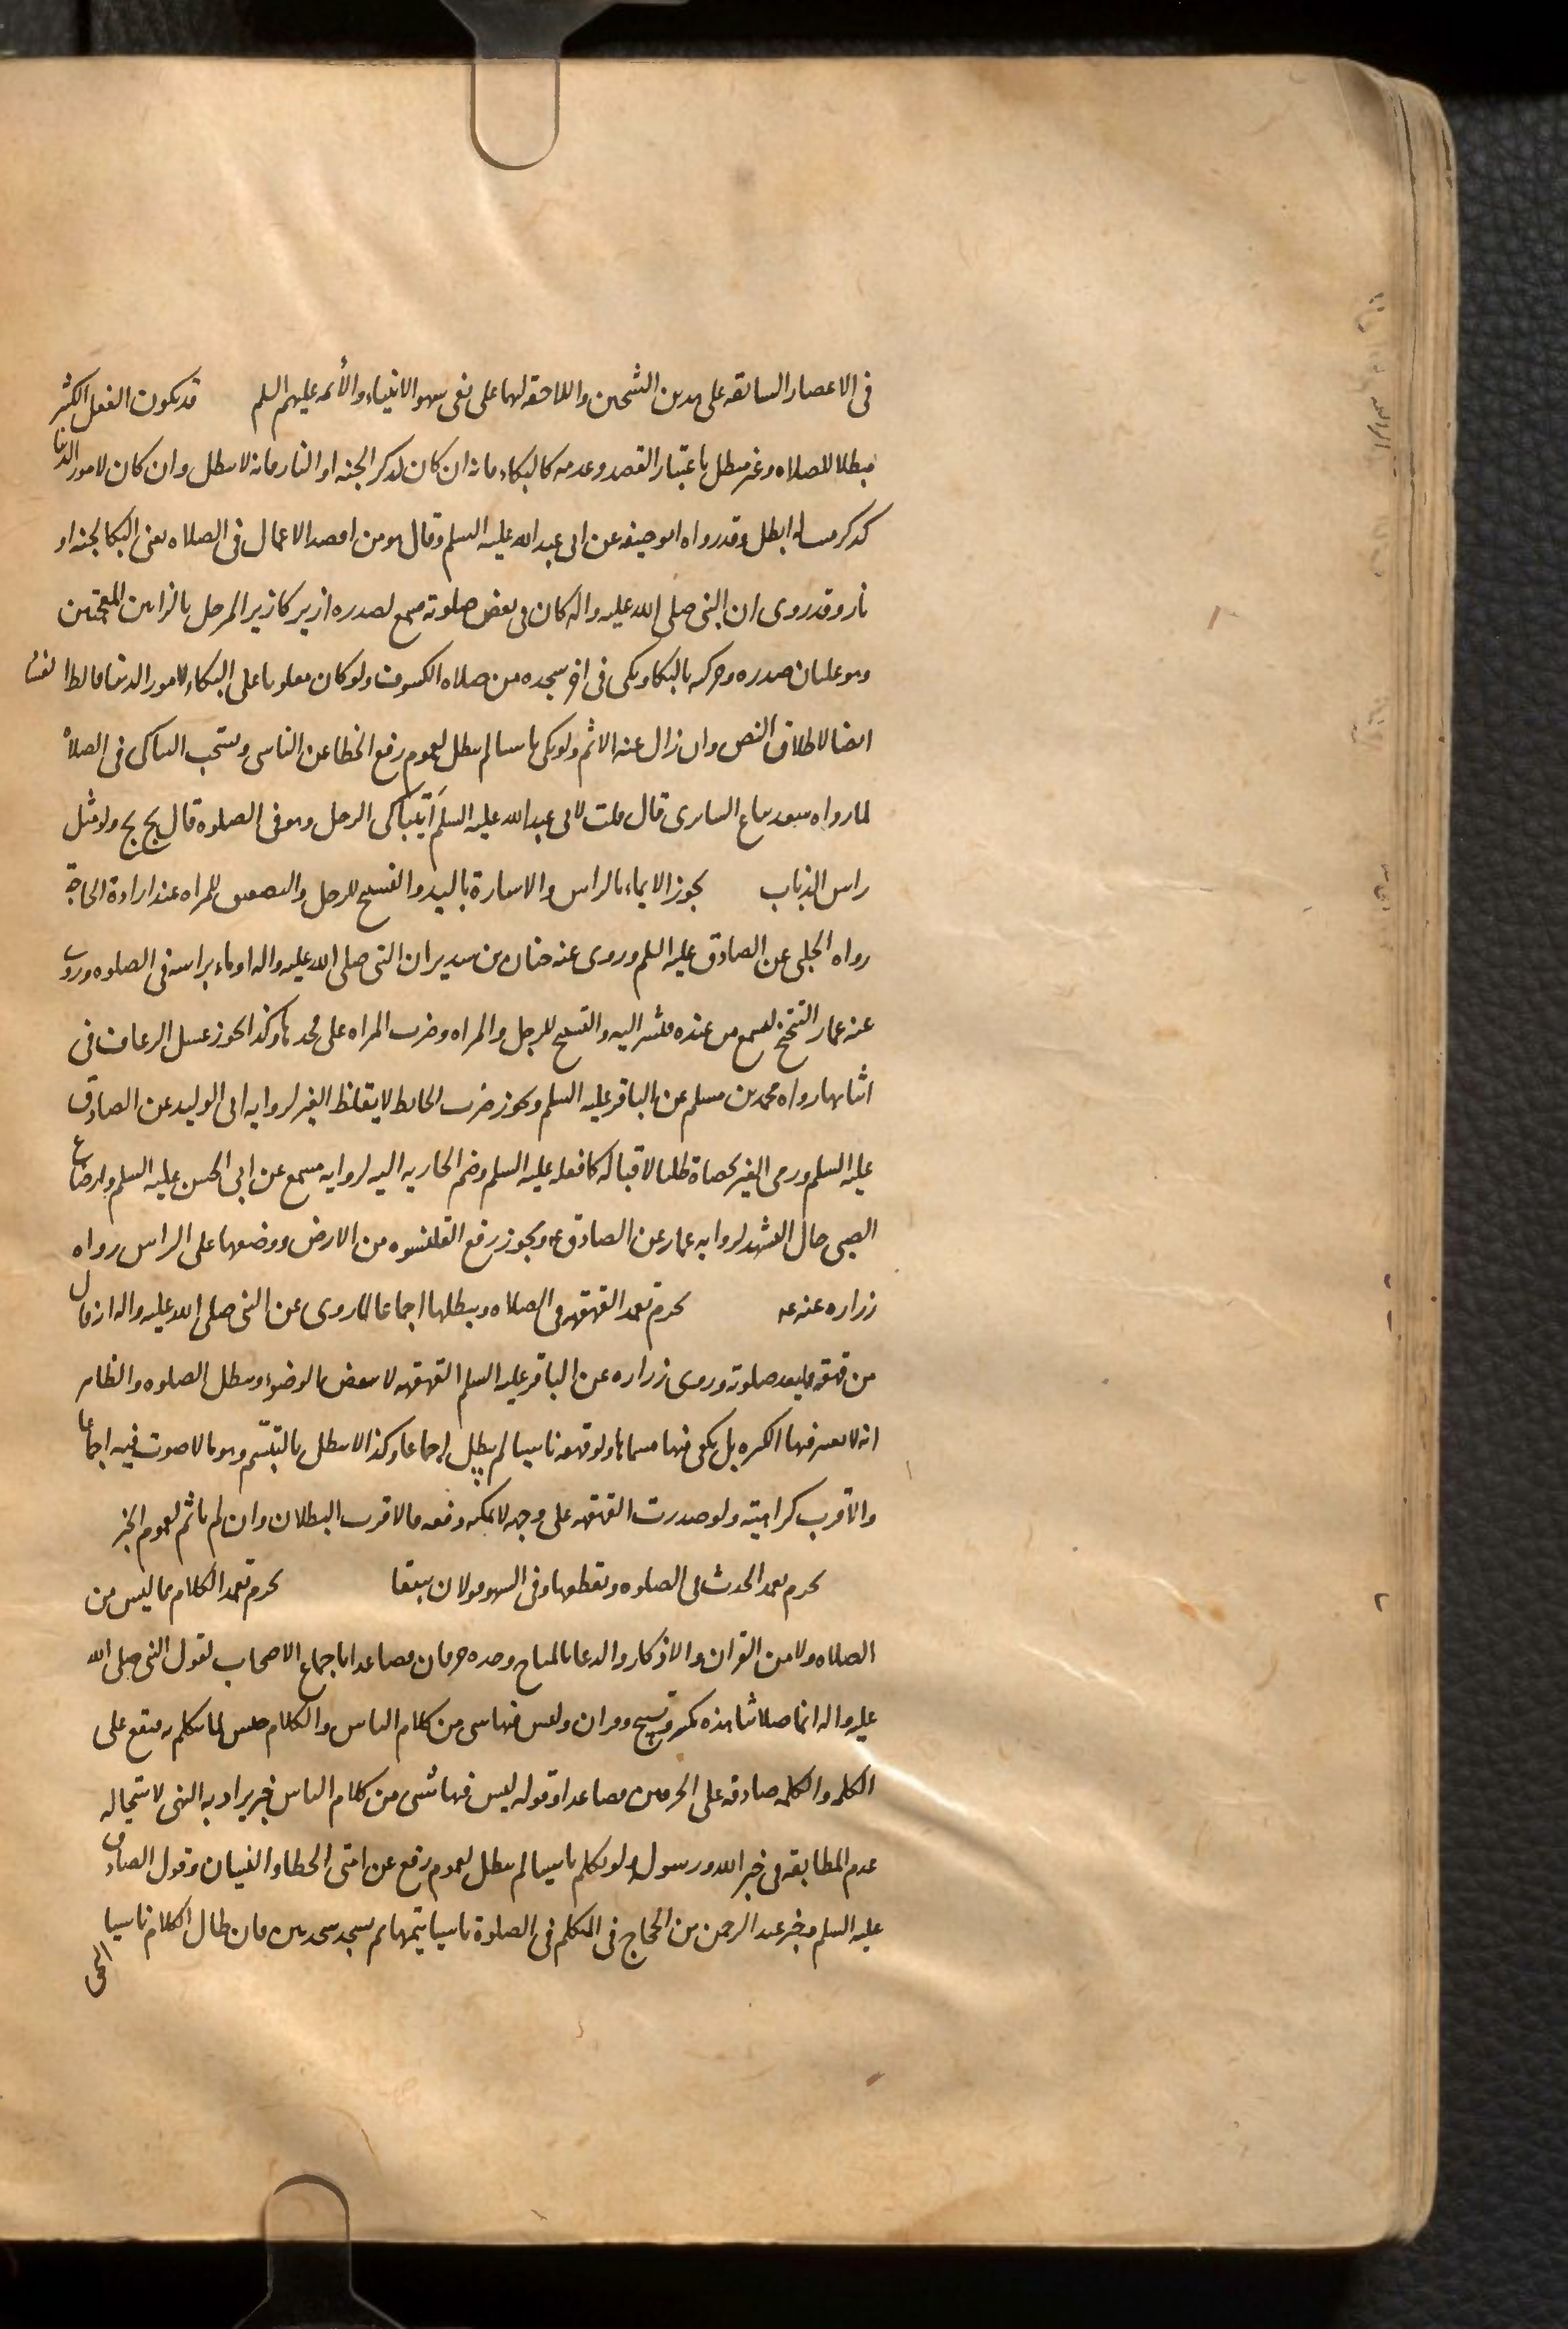 فى الاعصار السابقه على هذين الشيخين واللاحقه لهما على نفى سهو الانبياء والأئمه عليهم السلم قد يكون الفعل الكثير
مبطلا للصلاه وغير مبطل باعتبار القصد وعدمه كالبكاء فانه ان كان لذكر الجنه او النار فانه لا يبطل وان كان لامور الدنيا
كذكر ميت له ابطل وقد رواه ابو حنيفه عن ابى عبد الله عليه السلم وقال هو من افضل الاعمال فى الصلاه يعنى البكا لجنه او
نار وقد روى ان النبى صلى الله عليه واله كان فى بعض صلوته يسمع لصدره ازيز كازيز المرجل بالزايين المعجمتين
وهو غليان صدره وحركته بالبكا وبكى فى اخر سجده من صلاه الكسوف ولو كان مغلوبا على البكاء لامور الدنيا فالظاهر
ايضا لاطلاق النص وان زال عنه الاثم ولو بكى ناسيا لم يبطل لعموم رفع الخطا عن الناسى ويستحب التباكى فى الصلاة
لما رواه سعيد بياع السابرى قال قلت لابى عبد الله عليه السلم أيتباكى الرجل وهو فى الصلوه قال بخ بخ ولو مثل
راس الذباب يجوز الايماء بالراس والاشارة باليد والتسبيح للرجل والتصفيق للمراه عند ارادة الحاجة
رواه الحلبى عن الصادق عليه السلم وروى عنه حنان بن سدير ان النبى صلى الله عليه واله اوماء براسه فى الصلوه وروى
عنه عمار التنحنح ليسمع من عنده فيشير اليه والتسبيح للرجل والمراه وضرب المراه على فخذها وكذا يجوز غسل الرعاف فى
اثنائها رواه محمد بن مسلم عن الباقر عليه السلم ويجوز ضرب الحايط لايقاظ الغير لروايه ابى الوليد عن الصادق
عليه السلم ورمى الغير بحصاة طلبا لاقباله كما فعله عليه السلم وضم الجاريه اليه لروايه مسمع عن ابى الحسن عليه السلم وارضاع
الصبى حال التشهد لروايه عمار عن الصادق ع ويجوز رفع القلنسوه من الارض ووضعها على الراس رواه
زراره عنه ع يحرم تعمد القهقهه فى الصلاه ويبطلها اجماعا لما روى عن النبى صلى الله عليه واله انه قال
من قهقه فليعد صلوته وروى زراره عن الباقر عليه السلم القهقهه لا تنقض الوضوء وتبطل الصلوه والظاهر
انه لا يعتبر فيها الكثره بل يكفى فيها مسماها ولو قهقه ناسيا لم يبطل اجماعا وكذا لا يبطل بالتبسّم وهو ما لا صوت فيه اجماعا
والاقرب كراهيته ولو صدرت القهقهه على وجه لا يمكنه دفعه فالاقرب البطلان وان لم ياثم لعموم الخبر
يحرم تعمد الحدث فى الصلوه ويقطعها وفى السهو قولان سبقا يحرم تعمد الكلام بما ليس من
الصلاه ولا من القران والاذكار والدعا بالمباح وحده حرفان فصاعدا باجماع الاصحاب لقول النبى صلى الله
عليه واله انما صلاتنا هذه تكبير وتسبيح وقران وليس فيها شى من كلام الناس والكلام جنس لما يتكلم به فيقع على
الكلمه والكلمه صادقه على الحرفين فصاعدا وقوله ليس فيها شى من كلام الناس خبر يراد به النهى لاستحاله
عدم المطابقه فى خبر الله ورسوله ولو تكلم ناسيا لم يبطل لعموم رفع عن امتى الخطاء والنسيان وقول الصادق
عليه السلم فى خبر عبد الرحمن بن الحجاج فى المتكلم فى الصلوة ناسيا يتمها ثم يسجد سجدتين فان طال الكلام ناسيا